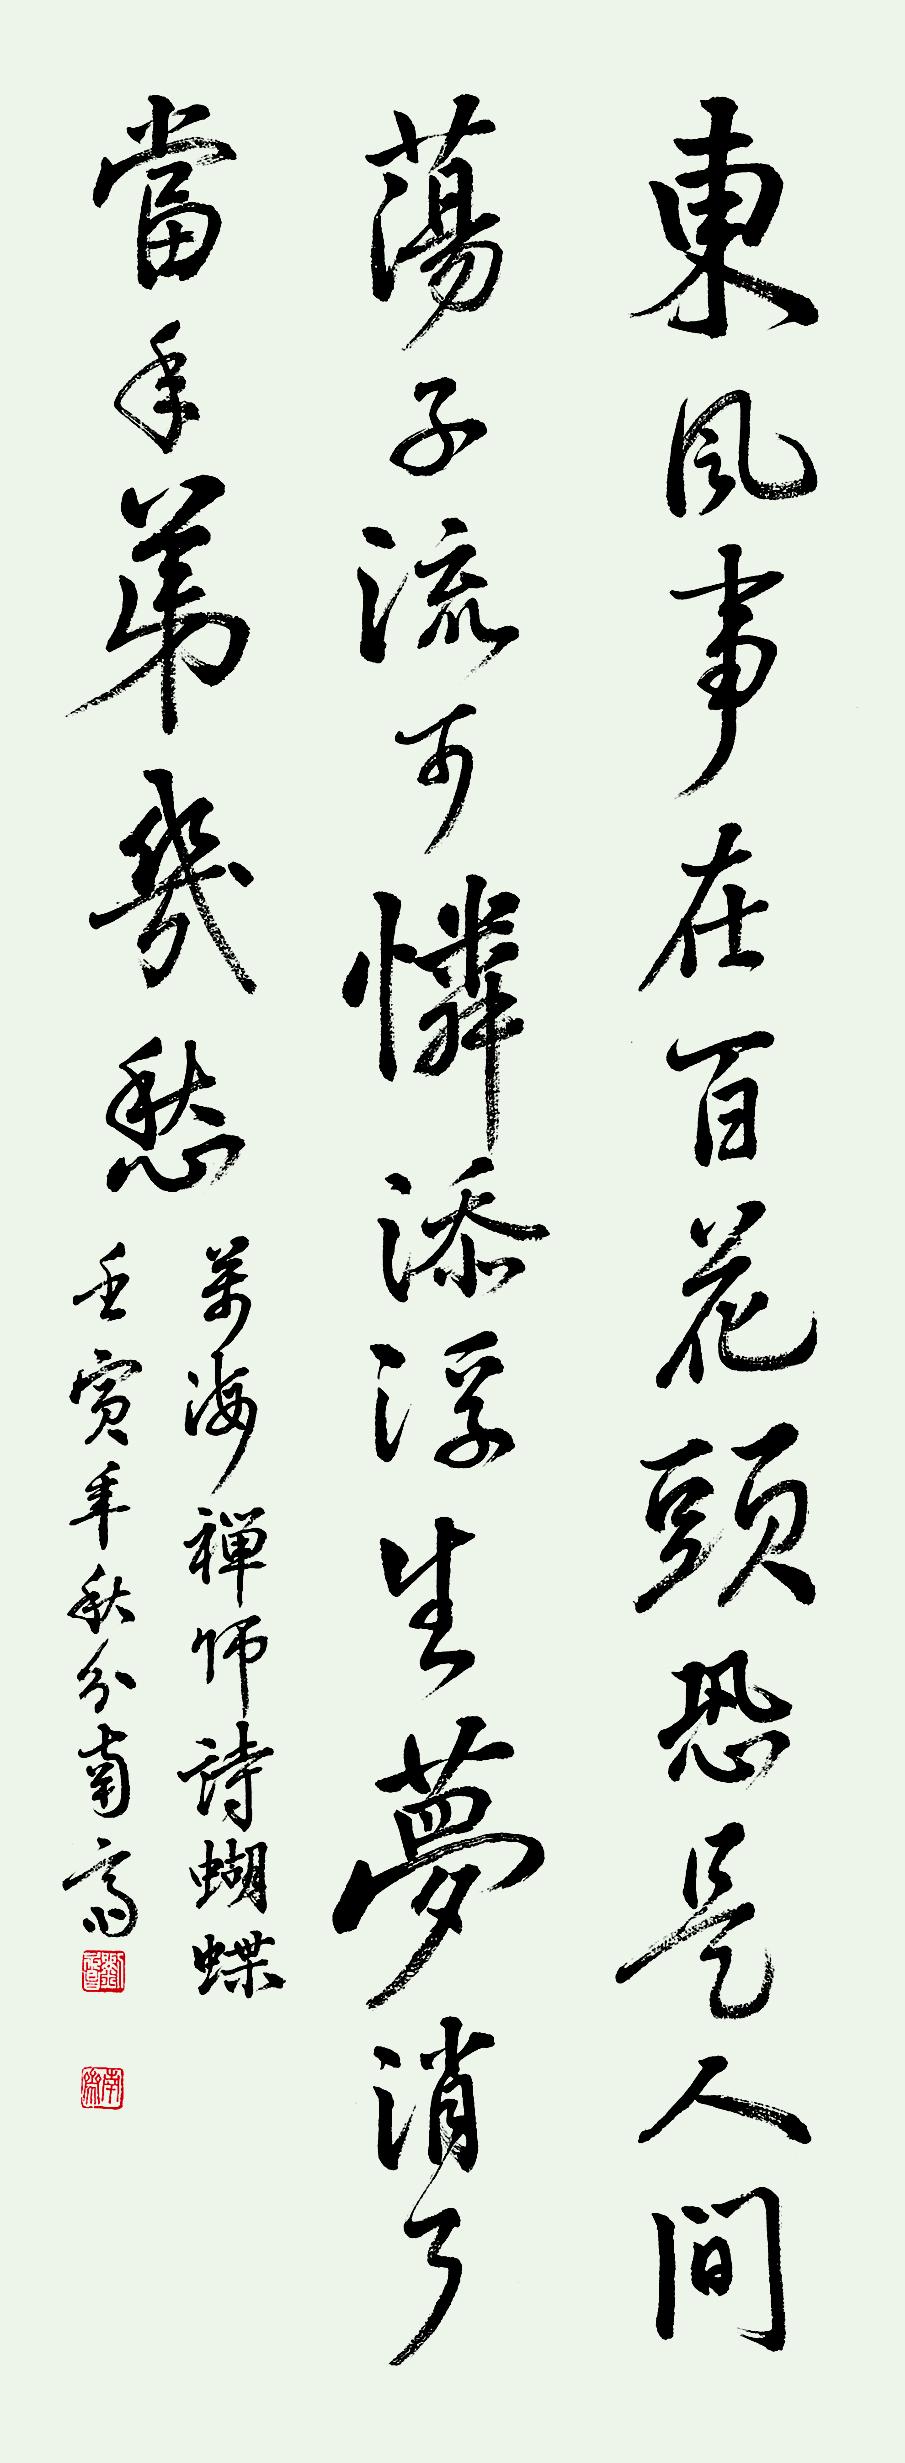 東風事在百花頭恐是人間
蕩子流可憐添浮生夢消了
當年第幾愁
萬海禪師詩蝴蝶
壬寅年秋分南齋